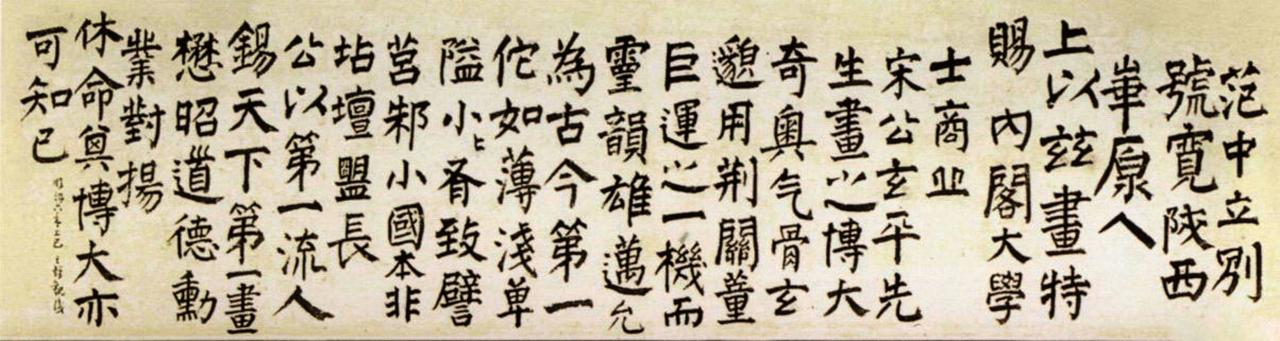 范中立別
號寬陝西
崋原人
上以兹畫特
賜內閣大學
士商丘
宋公玄平先
生畫之博大
奇奧气骨玄
邈用荆關董
巨運之一機而
靈韻雄邁允
為古今第一
佗如薄淺单
隘小〻脊致譬
莒邾小國本非
坫壇盟長
公以第一流人
錫天下第一畫
懋昭道德勳
業對揚
休命其博大亦
可知已